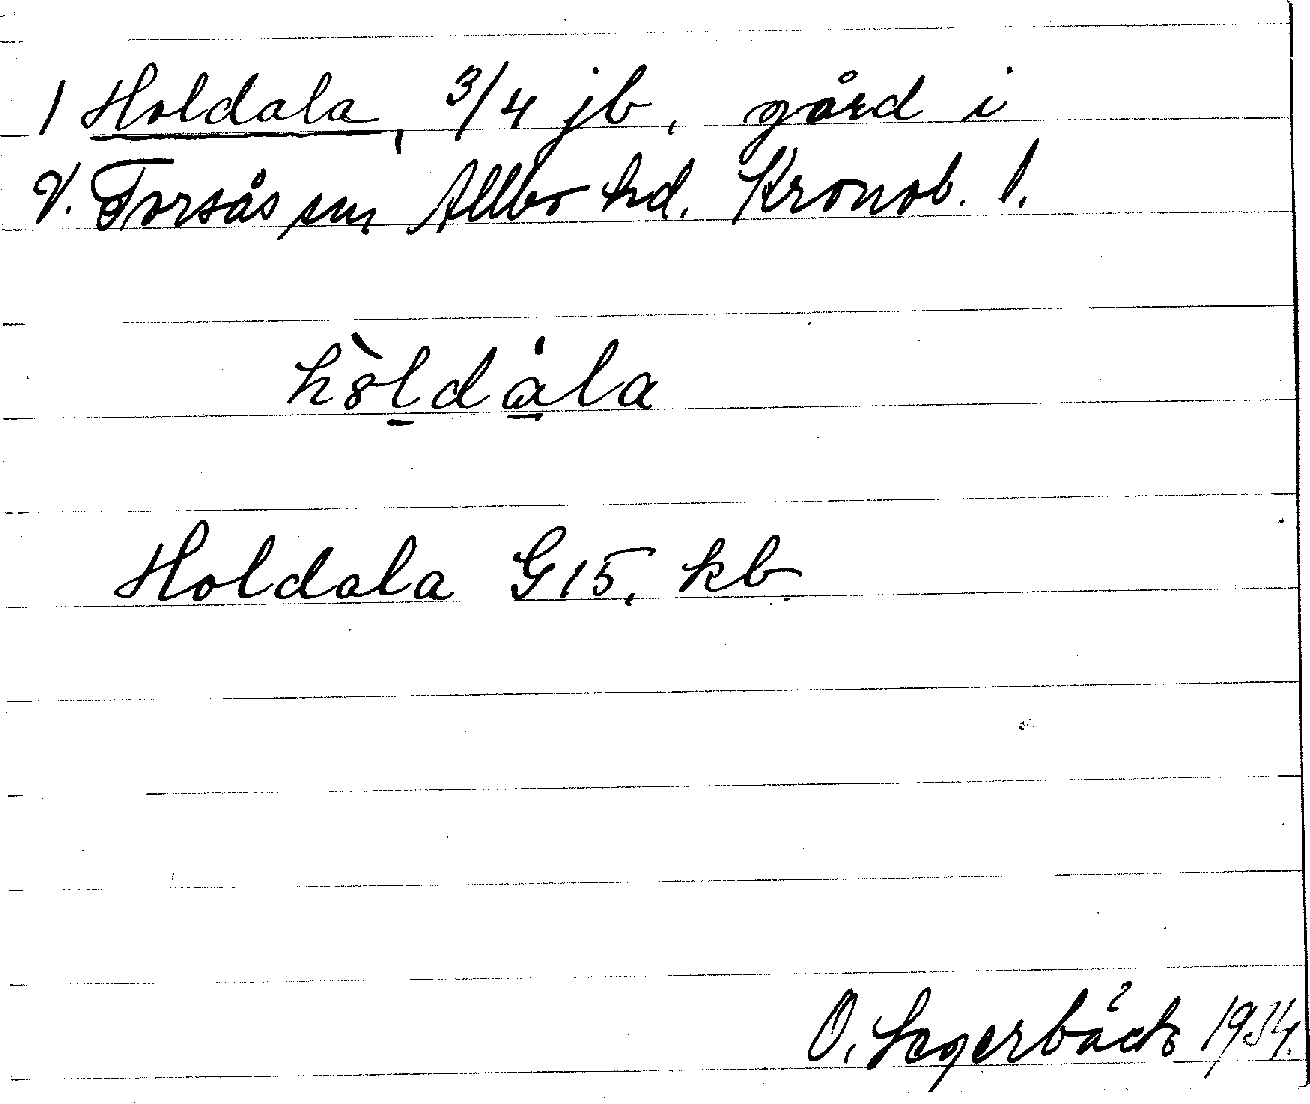 1 Holdala, 3/4 jb, gård i
V. Torsås sn, Allbo hd. Kronob. l.
hòldála
Holdala G15, kb.
O. 1934.